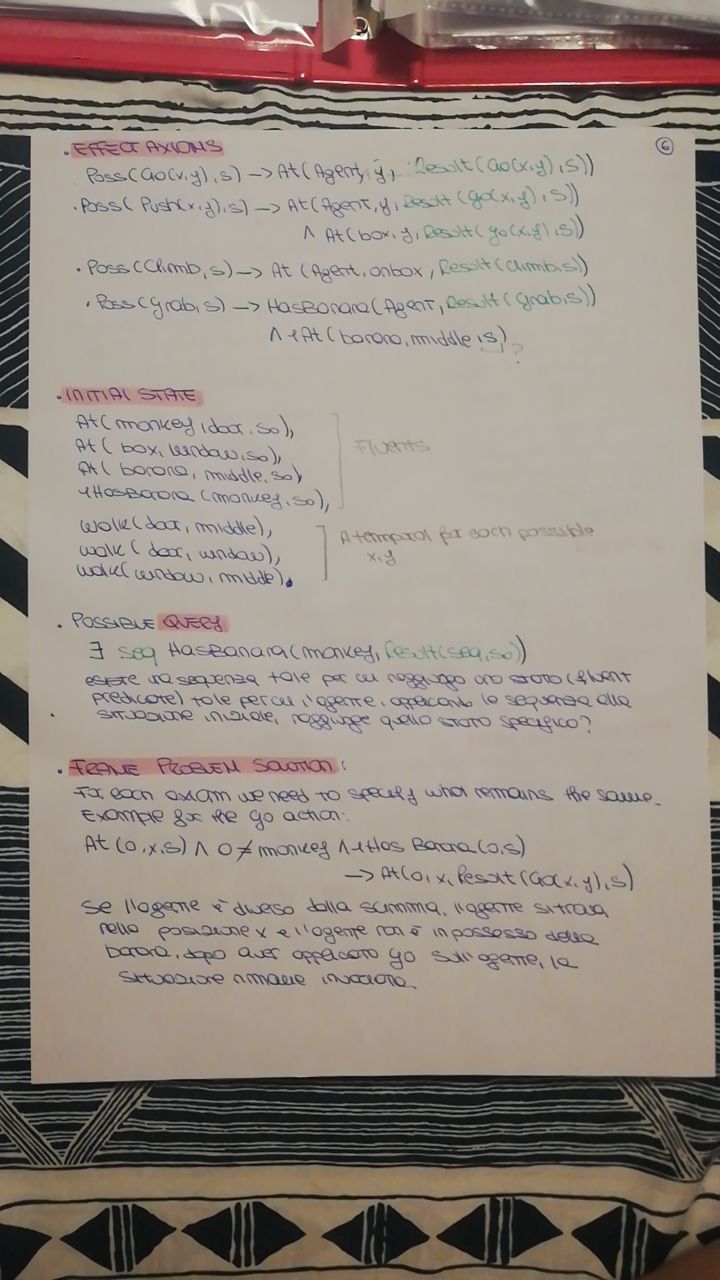 ⑥
. EFFECT AXIOMS
Poss(Go(x,y),s) → At(Agent, y, Result(Go(x,y),s))
. Poss(Push(x,y),s) → At(Agent,y,Result(go(x,y),s))
∧ At(box,y,Result(go(x,y),s))
. Poss(Climb,s) → At (Agent,onbox,Result(climb,s))
. Poss(grab,s) → HasBanana(Agent,Result(grab,s))
∧ ¬At(banana,middle,s) ?
. INITIAL STATE
At(monkey,door,so),
At(box,window,so),
At(banana, middle,so)
¬HasBanana(monkey,so),
Fluents
walk(door, middle),
walk(door, window),
walk(window, middle).
Atemporal for each possible
x,y
. POSSIBLE QUERY
∃ seq HasBanana(monkey,Result(seq,so))
esiste una sequenza tale per cui raggiungo uno stato (fluent
predicate) tale per cui l'agente, applicando la sequenza alla
situazione iniziale, raggiunge quello stato specifico?
. FRAME PROBLEM SOLUTION:
For each axiom we need to specify what remains the same.
Example for the go action:
At(o,x,s) ∧ o ≠ monkey ∧ ¬Has Banana(o,s)
→ At(o,x,Result(Go(x,y),s)
Se l'agente è diverso dalla scimmia, l'agente si trova
nella posizione x e l'agente non è in possesso della
banana, dopo aver applicato go sull'agente, la
situazione rimane invariata.